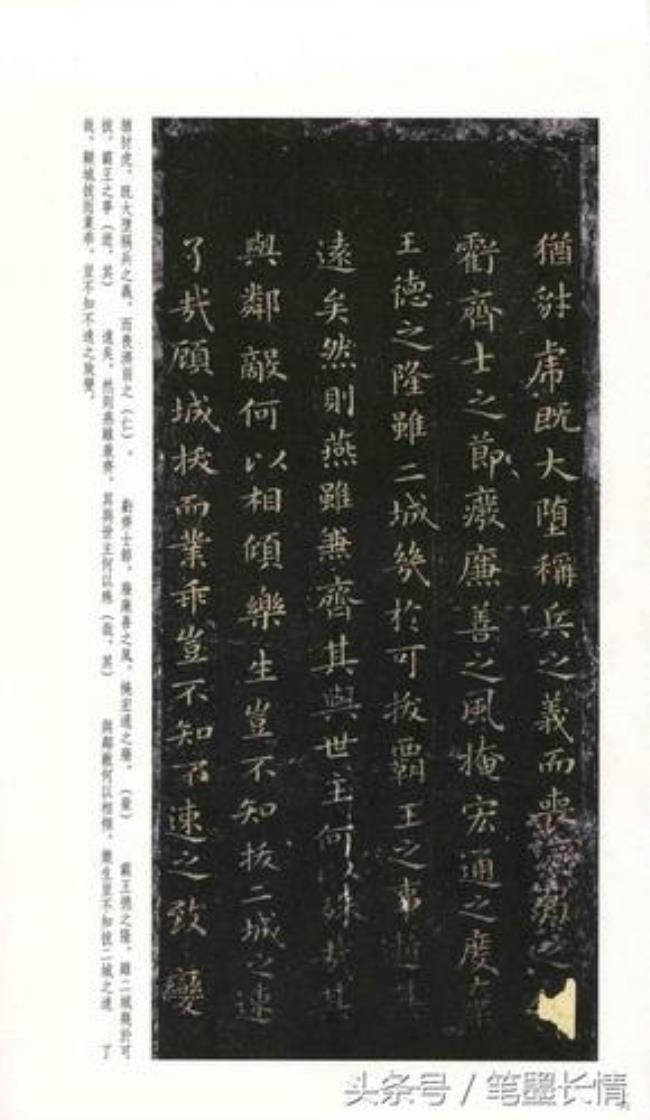 猶豺虎既大堕稱兵之義而喪濟弱之
虧齊士之節癈廉善之風掩宏通之度棄
王德之隆雖二城幾於可拔霸王之事逝其
遠矣然則燕雖兼齊其與世主何以殊哉其
與鄰敵何以相傾樂生豈不知拔二城之速
了哉顧城拔而業乖豈不知不速之致變
猶豺虎。既大堕稱兵之義，而喪濟弱之（仁）。 虧齊士節，廢廉善之風，掩宏通之度，（棄） 霸王德之隆，雖二城幾於可
拔，霸王之事（逝，其） 遠矣。然則燕雖兼齊，其與世主何以殊（哉，其） 與鄰敵何以相傾。樂生豈不知拔二城之速 了
哉，顧城拔而業乖，豈不知不速之致變。
头条号 / 笔墨长情